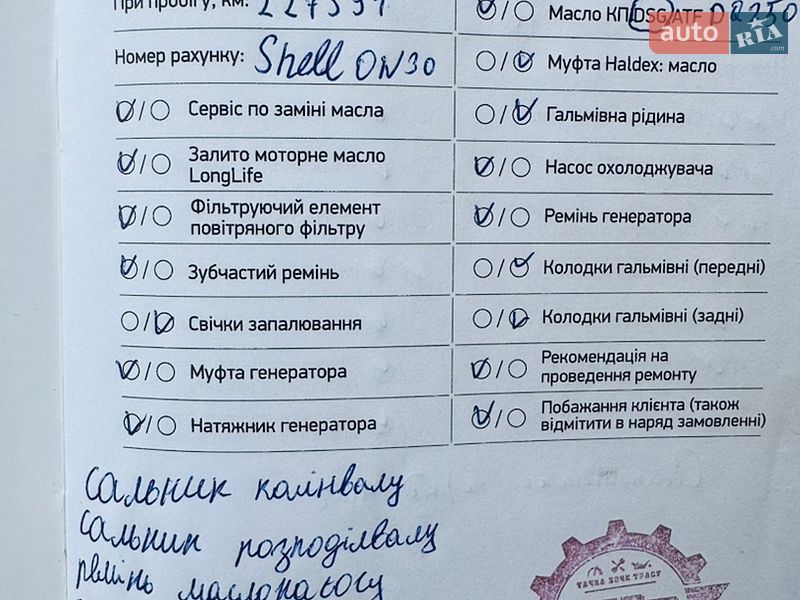 При пробігу, км: 227591
Номер рахунку: Shell OW30
Сервіс по заміні масла
Залито моторне масло
LongLife
Фільтруючий елемент
повітряного фільтру
Зубчастий ремінь
Свічки запалювання
Муфта генератора
Натяжник генератора
Масло КП/DSG/ATF
auto RIA .com
Муфта Haldex: масло
Гальмівна рідина
Насос охолоджувача
Ремінь генератора
Колодки гальмівні (передні)
Колодки гальмівні (задні)
Рекомендація на
проведення ремонту
Побажання клієнта (також
відмітити в наряд замовленні)
сальник колінвалу
сальник розподілвалу
ремінь маслонасосу